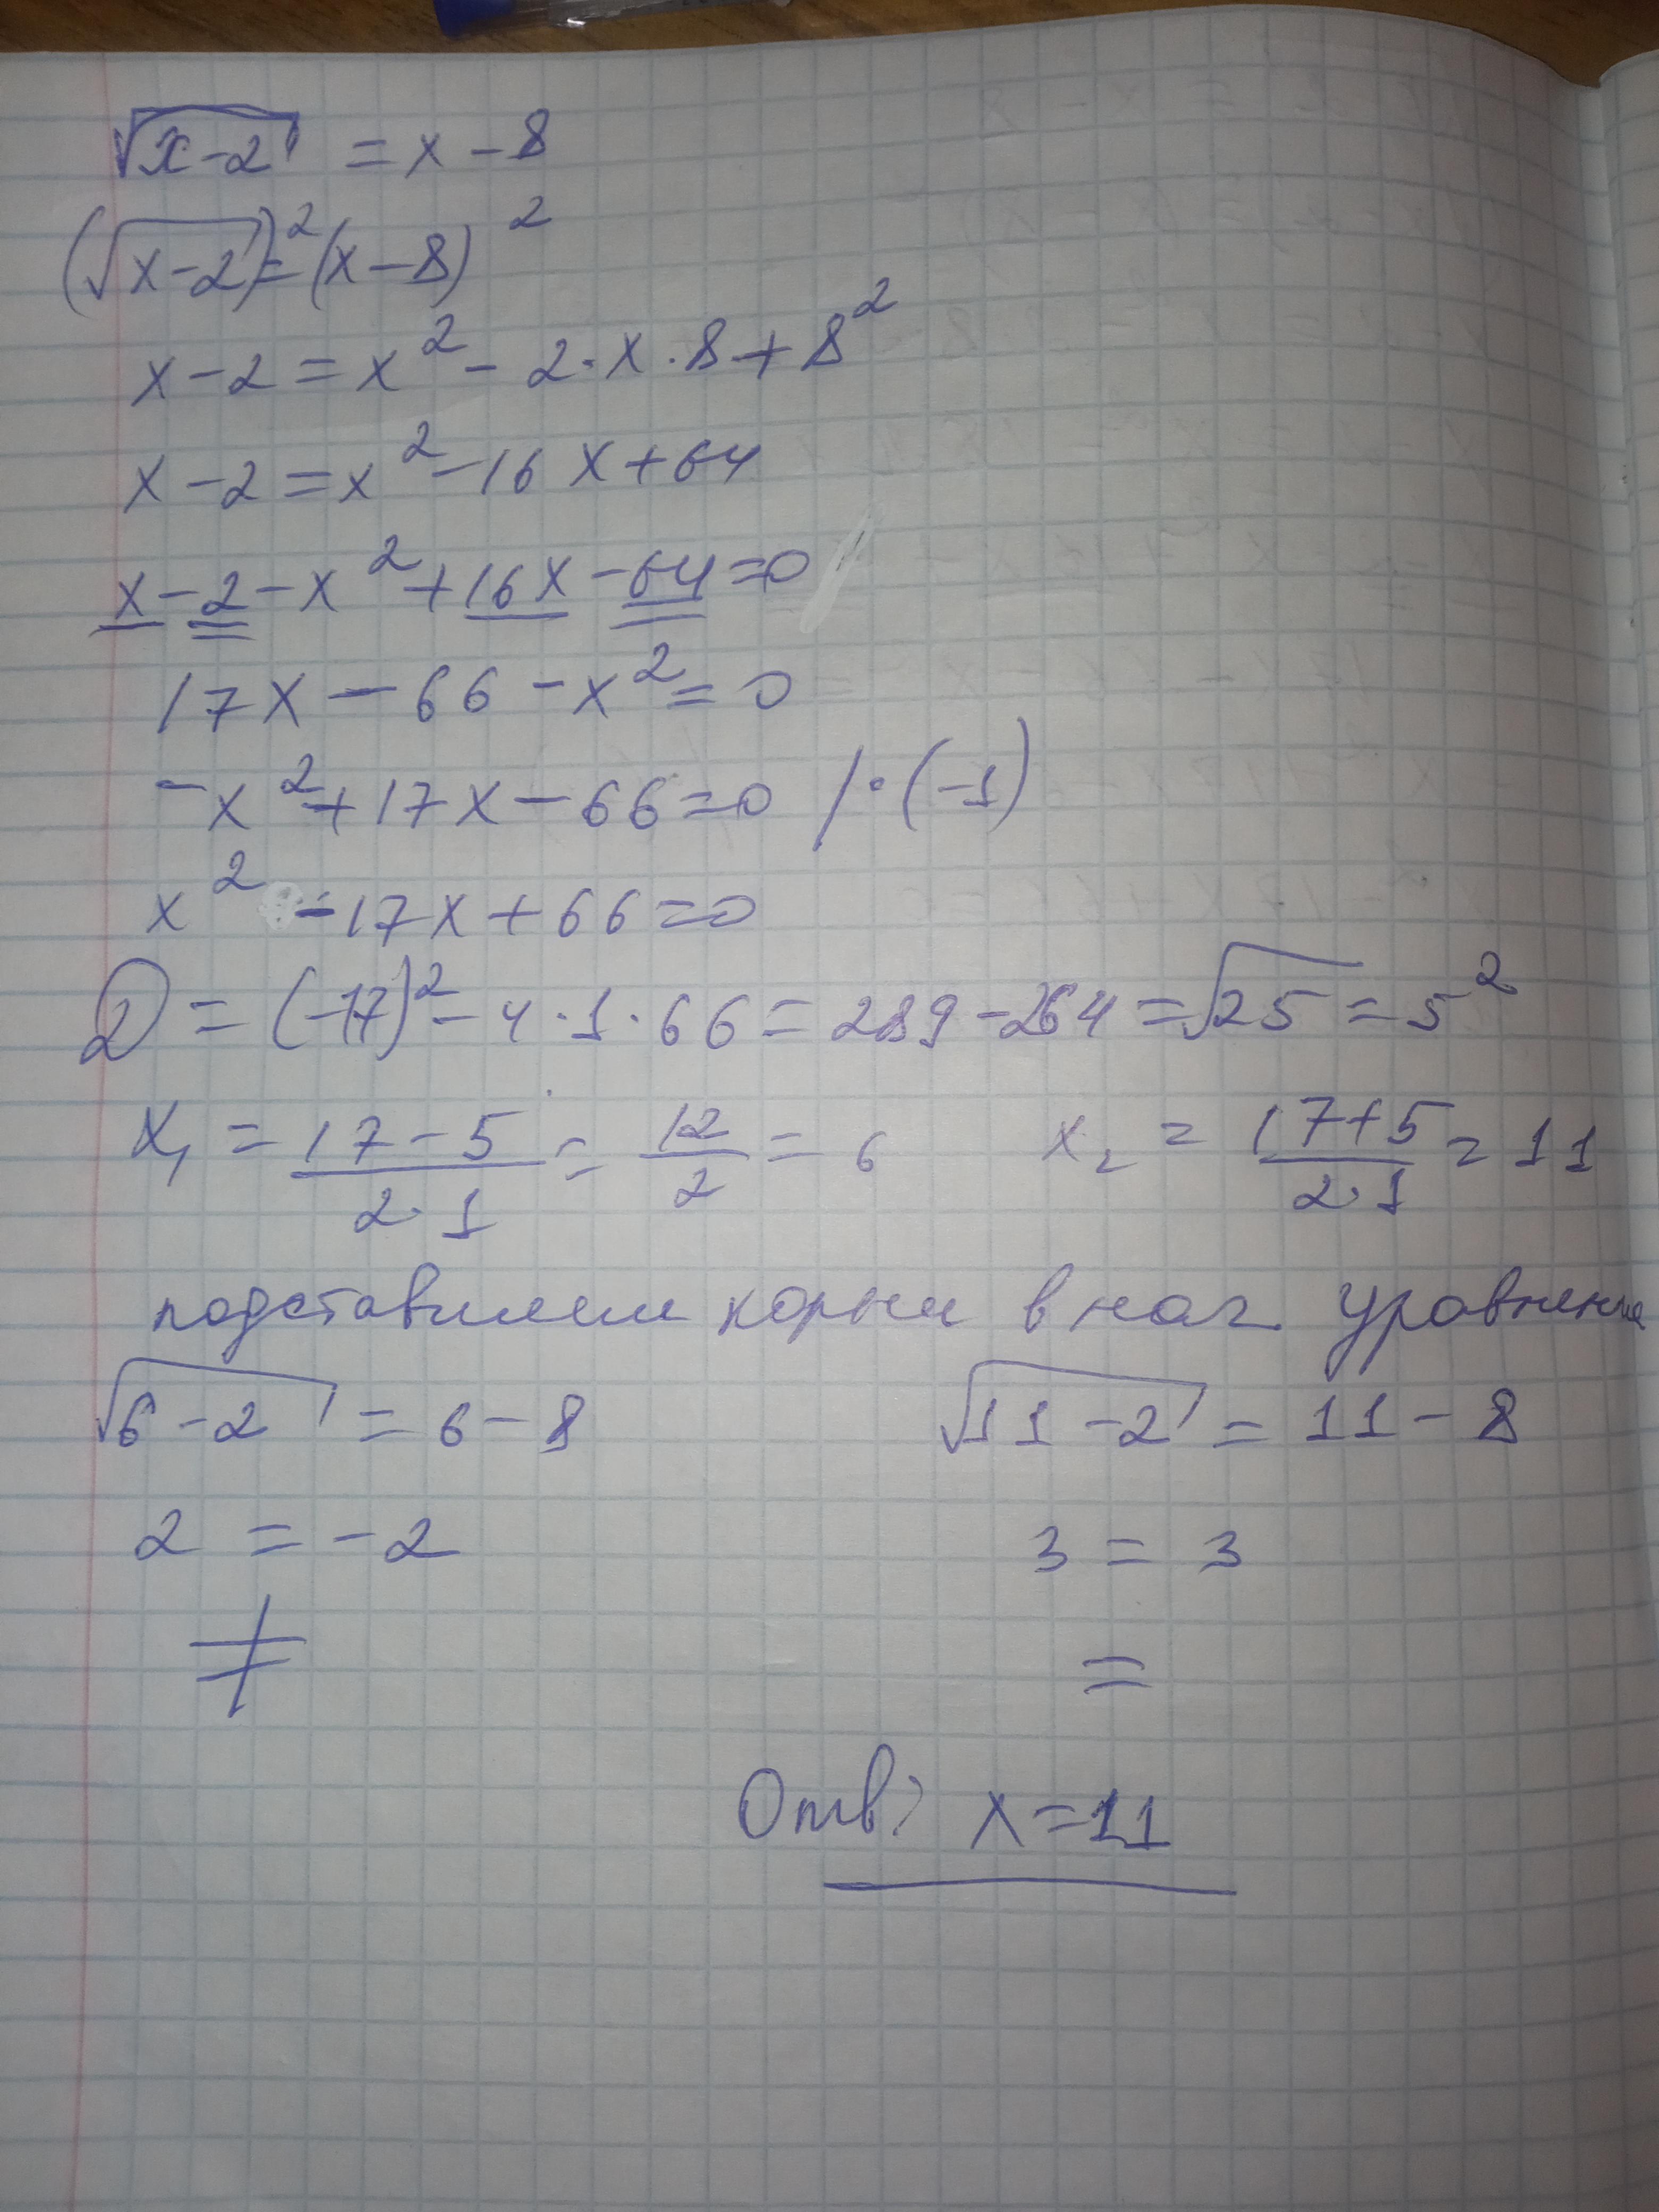 √(x-2) = x-8
(√(x-2))² = (x-8)²
x-2 = x² - 2·x·8 + 8²
x-2 = x² - 16x + 64
x-2-x²+16x-64=0
17x-66-x²=0
-x²+17x-66=0 /·(-1)
x²-17x+66=0
D = (-17)²-4·1·66=289-264=√25=5²
x₁ = (17-5)/(2·1) = 12/2 = 6 x₂ = (17+5)/(2·1) = 11
подставляем корни в нач. уравнение
√(6-2) = 6-8 √(11-2) = 11-8
2 = -2 3 = 3
≠ =
Отв: x=11